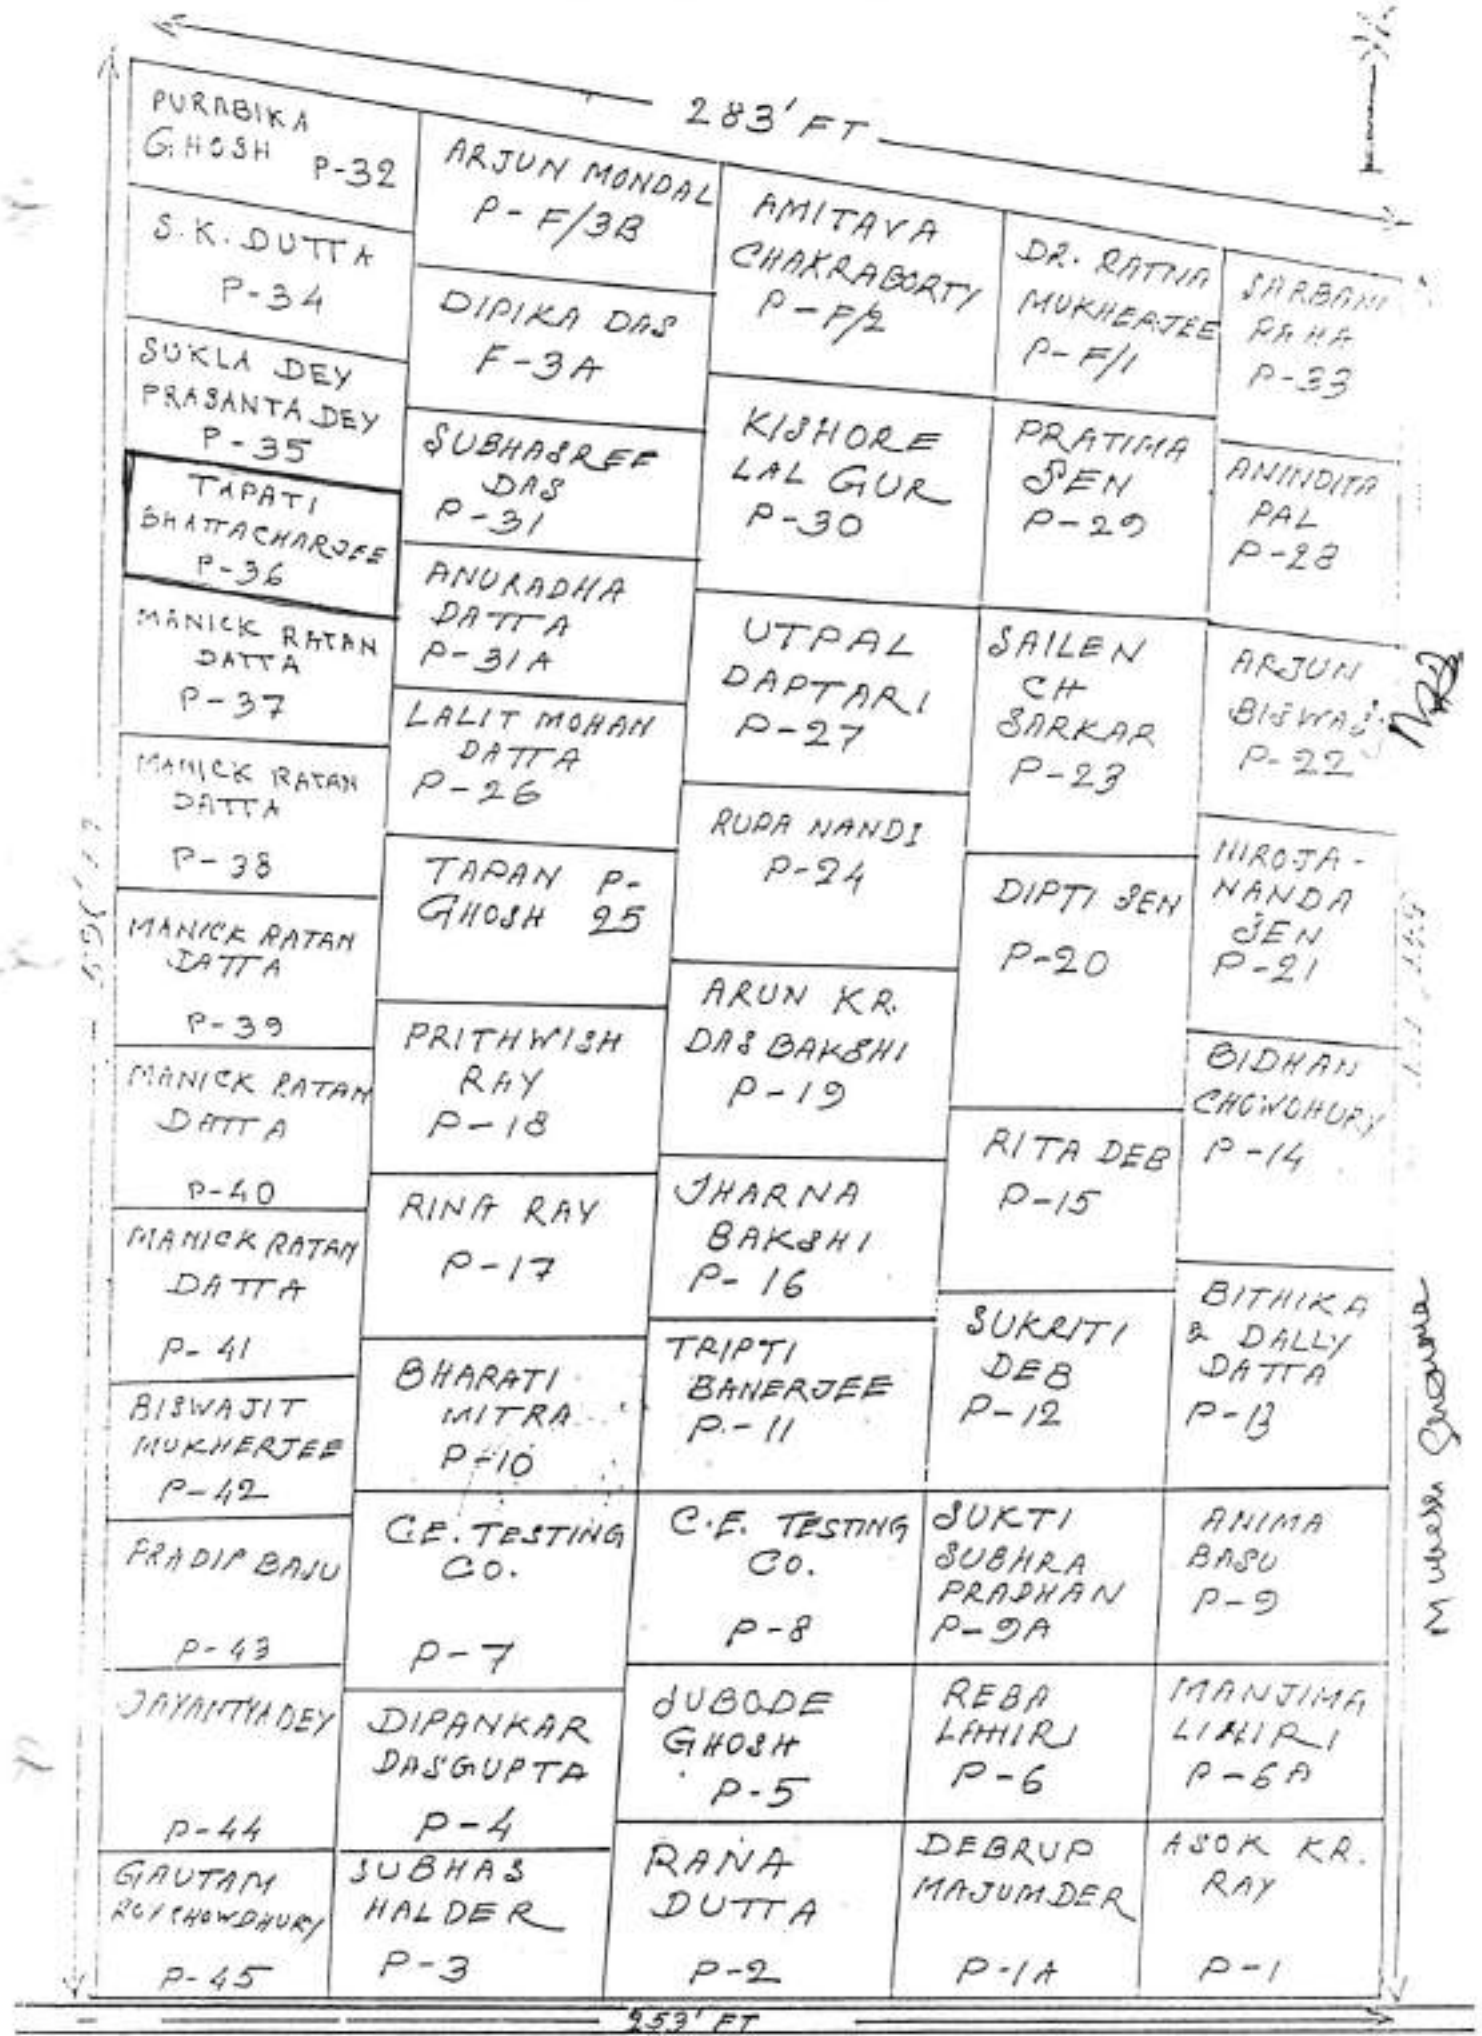 283' FT
PURABIKA
GHOSH P-32
S.K. DUTTA
P-34
SUKLA DEY
PRASANTA DEY
P-35
TAPATI
BHATTACHARJEE
P-36
MANICK RATAN
DATTA
P-37
MANICK RATAN
DATTA
P-38
MANICK RATAN
DATTA
P-39
MANICK RATAN
DATTA
P-40
MANICK RATAN
DATTA
P-41
BISWAJIT
MUKHERJEE
P-42
PRADIP BASU
P-43
JAYANTYA DEY
P-44
GAUTAM
ROYCHOWDHURY
P-45
ARJUN MONDAL
P-F/3B
DIPIKA DAS
F-3A
SUBHASREE
DAS
P-31
ANURADHA
DATTA
P-31A
LALIT MOHAN
DATTA
P-26
TAPAN P-
GHOSH 25
PRITHWISH
RAY
P-18
RINA RAY
P-17
BHARATI
MITRA
P-10
C.E. TESTING
CO.
P-7
DIPANKAR
DASGUPTA
P-4
SUBHAS
HALDER
P-3
AMITAVA
CHAKRABORTY
P-F/2
KISHORE
LAL GUR
P-30
UTPAL
DAPTARI
P-27
RUPA NANDI
P-24
ARUN KR.
DAS BAKSHI
P-19
JHARNA
BAKSHI
P-16
TRIPTI
BANERJEE
P-11
C.E. TESTING
CO.
P-8
SUBODE
GHOSH
P-5
RANA
DUTTA
P-2
DR. RATNA
MUKHERJEE
P-F/1
PRATIMA
SEN
P-29
SAILEN
CH
SARKAR
P-23
DIPTI SEN
P-20
RITA DEB
P-15
SUKRITI
DEB
P-12
SUKTI
SUBHRA
PRADHAN
P-9A
REBA
LAHIRI
P-6
DEBRUP
MAJUMDER
P-1A
SARBANI
RAHA
P-33
ANINDITA
PAL
P-28
ARJUN
BISWAS
P-22
NIROJA-
NANDA
SEN
P-21
BIDHAN
CHOWDHURY
P-14
BITHIKA
& DALLY
DATTA
P-13
ANIMA
BASU
P-9
MANJIMA
LIHIRI
P-6A
ASOK KR.
RAY
P-1
253' FT